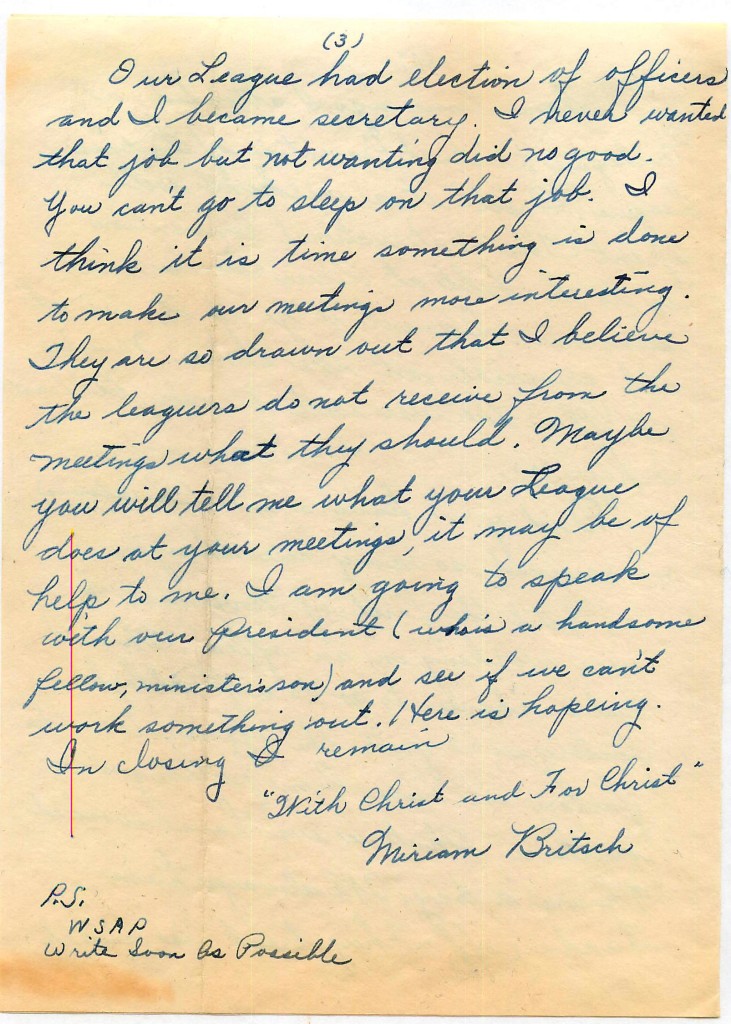 (3)
Our League had election of officers
and I became secretary. I never wanted
that job but not wanting did no good.
You can't go to sleep on that job. I
think it is time something is done
to make our meetings more interesting.
They are so drawn out that I believe
the leaguers do not receive from the
meetings what they should. Maybe
you will tell me what your League
does at your meetings, it may be of
help to me. I am going to speak
with our President (who's a handsome
fellow, minister's son) and see if we can't
work something out. Here is hopeing.
In closing I remain
"With Christ and For Christ"
Miriam Britsch
P.S.
WSAP
Write Soon As Possible